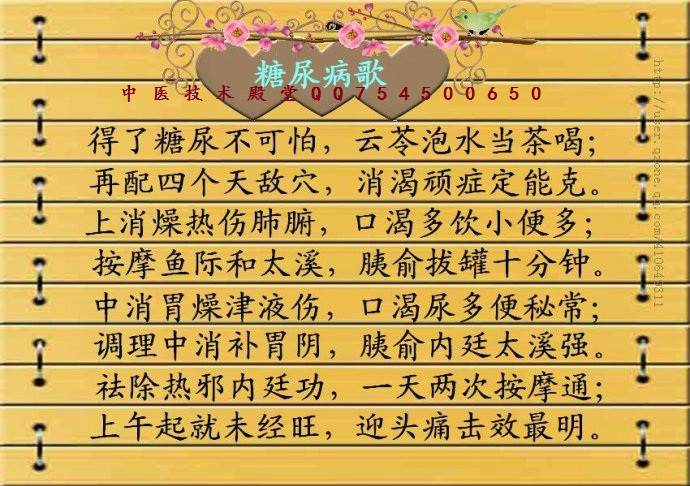 糖尿病歌
中医技术殿堂QQ754500650
得了糖尿不可怕，云苓泡水当茶喝；
再配四个天敌穴，消渴顽症定能克。
上消燥热伤肺腑，口渴多饮小便多；
按摩鱼际和太溪，胰俞拔罐十分钟。
中消胃燥津液伤，口渴尿多便秘常；
调理中消补胃阴，胰俞内廷太溪强。
祛除热邪内廷功，一天两次按摩通；
上午起就未经旺，迎头痛击效最明。
http://user.qzone.qq.com/410649311